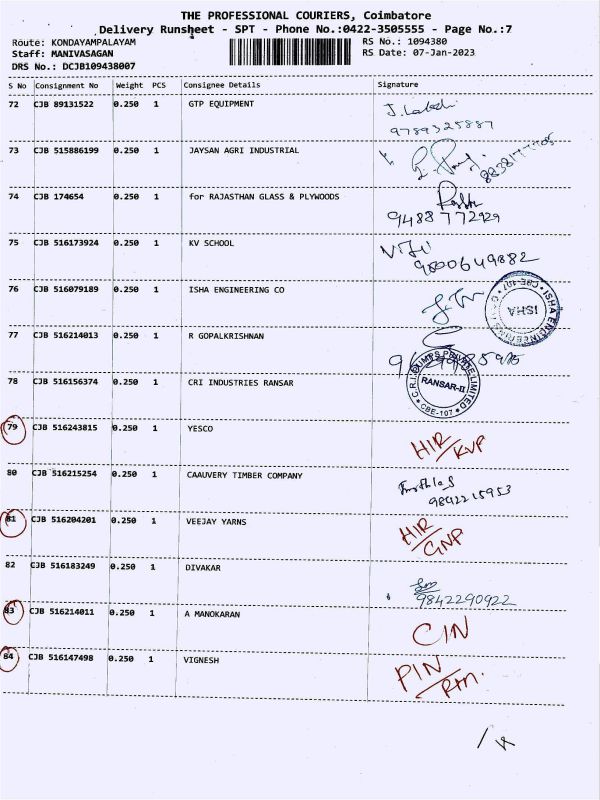 THE PROFESSIONAL COURIERS, Coimbatore
Delivery Runsheet - SPT - Phone No.:0422-3505555 - Page No.:7
Route: KONDAYAMPALAYAM RS No.: 1094380
Staff: MANIVASAGAN RS Date: 07-Jan-2023
DRS No.: DCJB109438007
S No Consignment No Weight PCS Consignee Details Signature
72 CJB 89131522 0.250 1 GTP EQUIPMENT
9789325887
73 CJB 515886199 0.250 1 JAYSAN AGRI INDUSTRIAL
74 CJB 174654 0.250 1 for RAJASTHAN GLASS & PLYWOODS
9488772929
75 CJB 516173924 0.250 1 KV SCHOOL
9800649882
76 CJB 516079189 0.250 1 ISHA ENGINEERING CO
ISHA ENGINEERING
CBE-107
ISHA
77 CJB 516214013 0.250 1 R GOPALKRISHNAN
78 CJB 516156374 0.250 1 CRI INDUSTRIES RANSAR
C.R.I. PUMPS PRIVATE LIMITED
RANSAR-II
CBE-107
79 CJB 516243815 0.250 1 YESCO
HIR/KVP
80 CJB 516215254 0.250 1 CAAUVERY TIMBER COMPANY
9842215953
81 CJB 516204201 0.250 1 VEEJAY YARNS
HIR/GNP
82 CJB 516183249 0.250 1 DIVAKAR
9842290922
83 CJB 516214011 0.250 1 A MANOKARAN
CIN
84 CJB 516147498 0.250 1 VIGNESH
PIN/